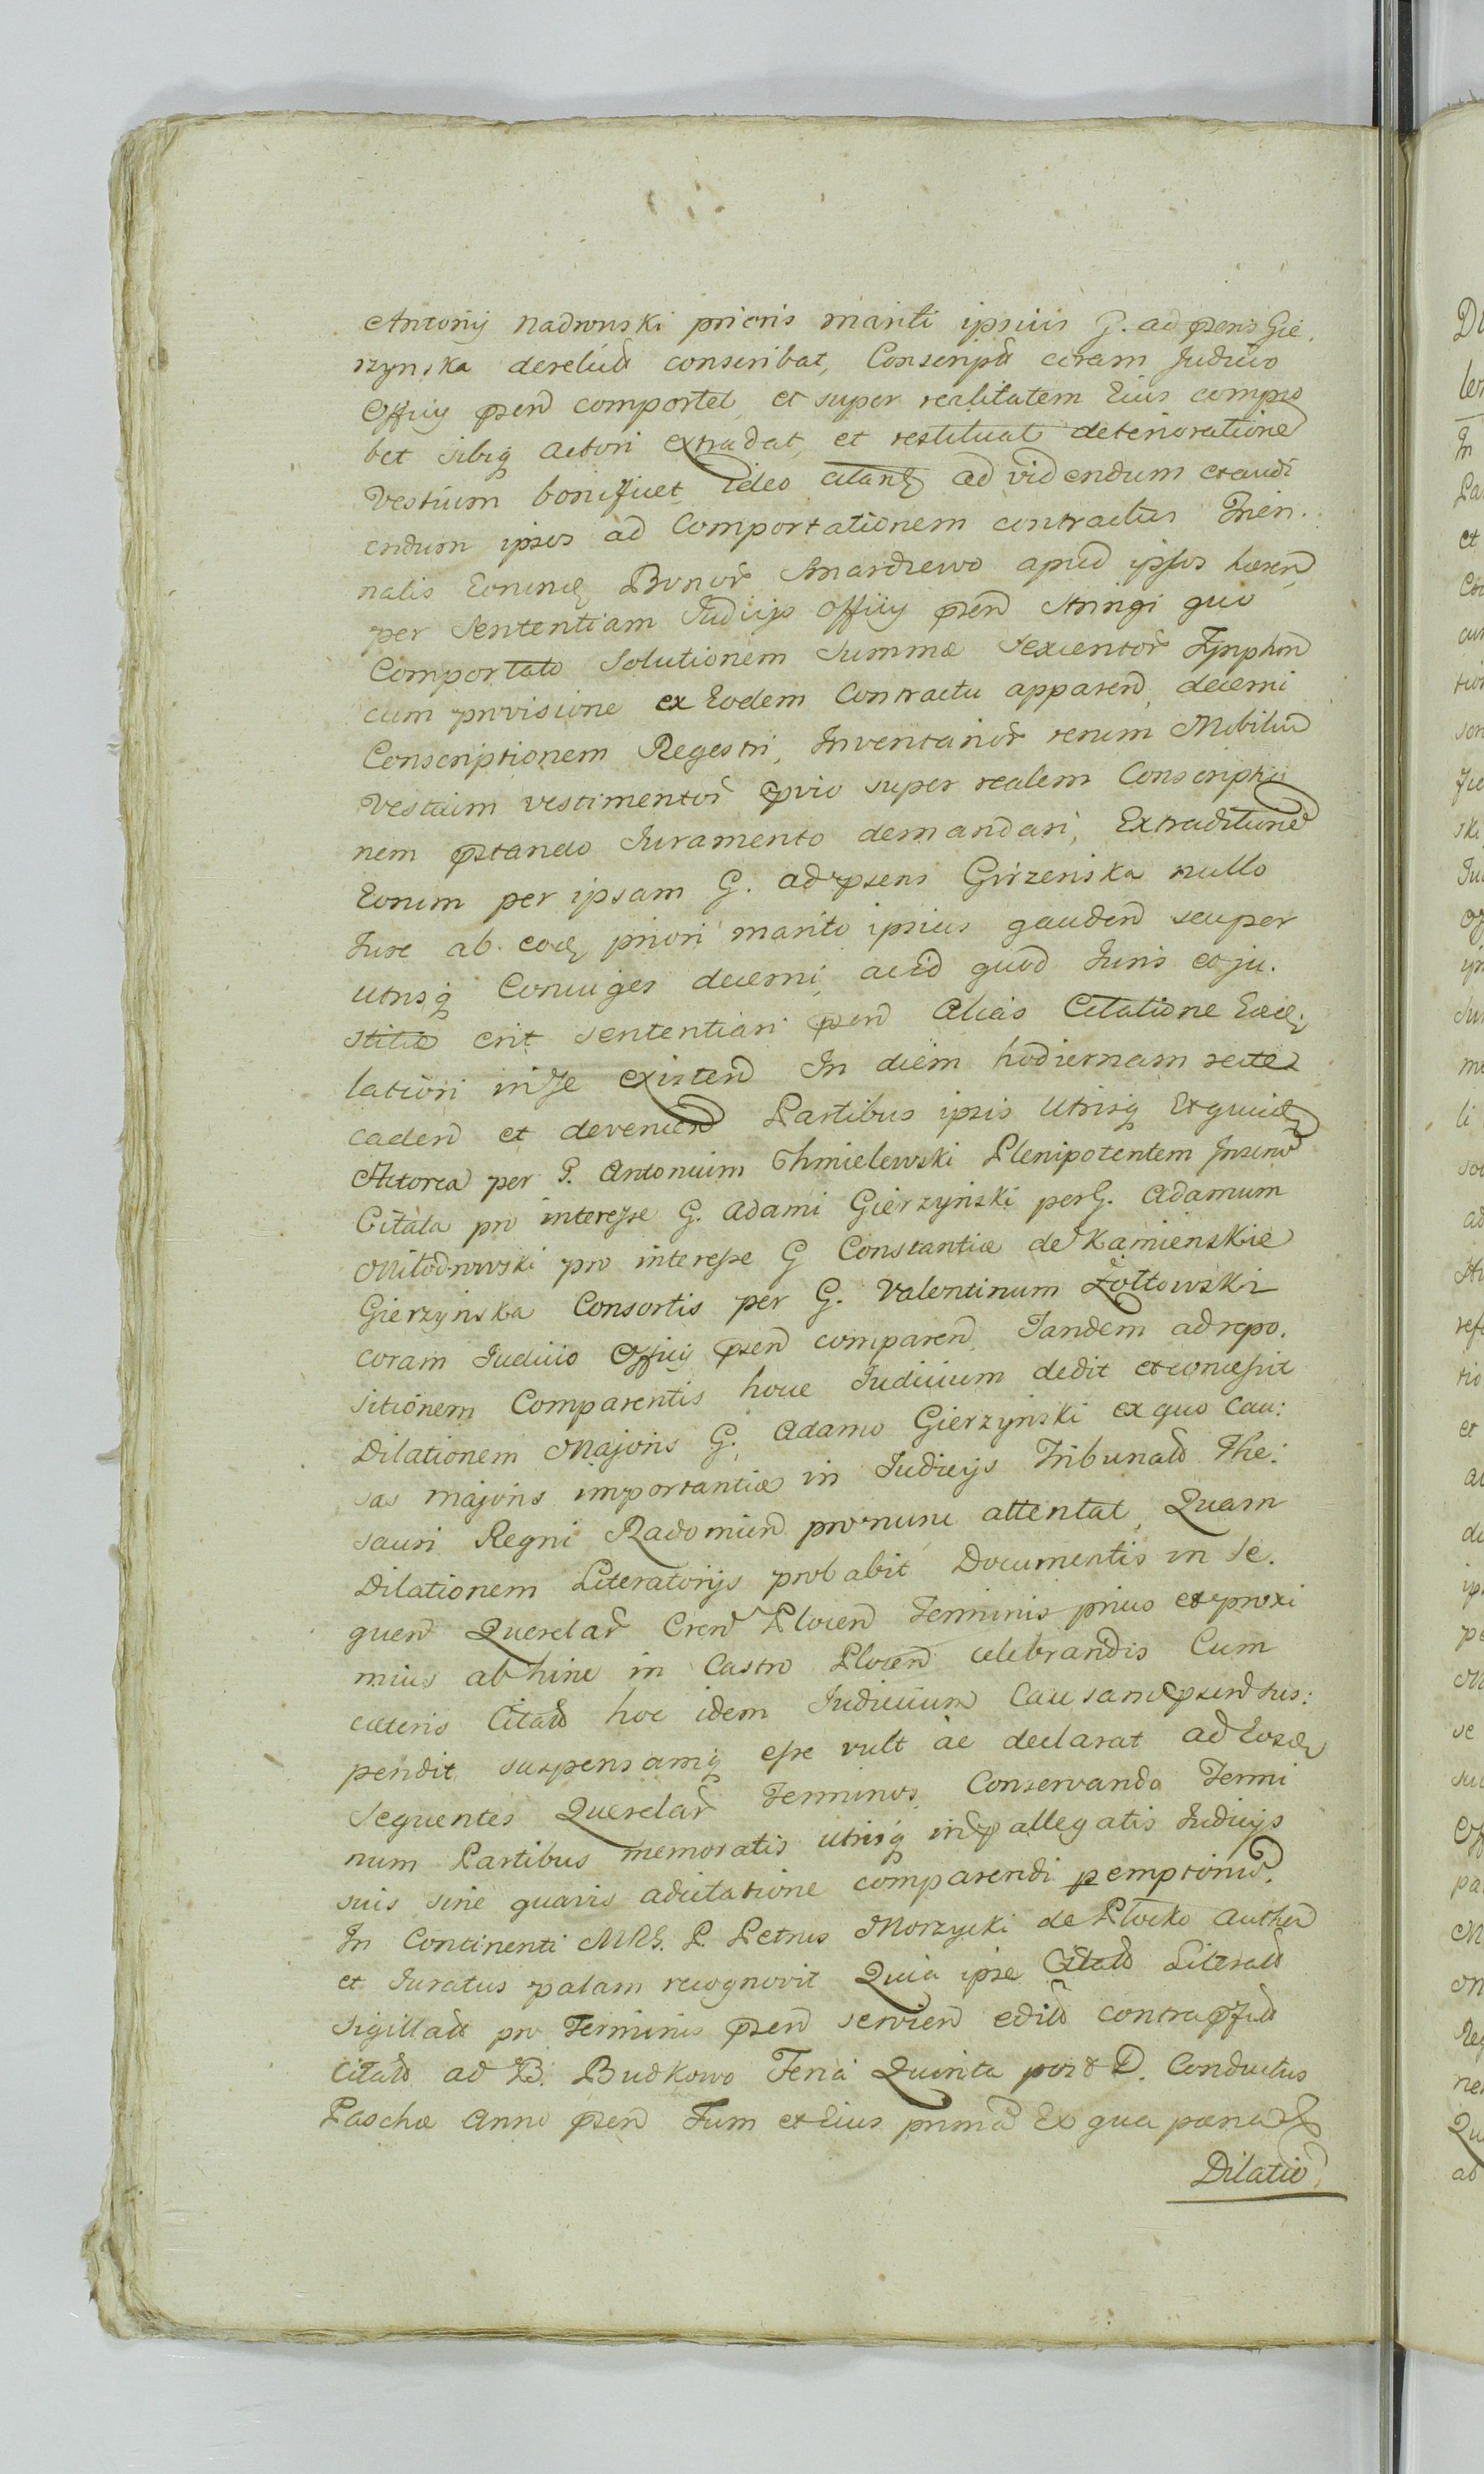 Antonij Nadrowski prioris mariti ipsius G. adpsens Gie.
rzynska derelict conscribat, Conscript coram Judicio
Officij psen comportet, et super realitatem Eius compro
bet sibiq Actori extradat, et restituat deterioratione
Vestium bonificet Ideo citant ad videndum et audi
endum ipsos ad Comportationem contractus Trien.
nalis Eorund Bonor Smardzewo apud ipsos haeren
per Sententiam Judicij Officij psen stringi quo
Comportato Solutionem Summae Sexcentor Tynphon
cum provisione ex Eodem Contractu apparen, decerni
Conscriptionem Regestri, Inventarior rerum Mobiliu
Vestium vestimentor pvio super realem Conscriptio
nem pstando Juramento demandari, Extraditione
Eorum per ipsam G. adpsens Girzenska nullo
Jure ab eod priori marito ipsius gauden seu per
utrosq Coniuges decerni, ac id quod Juris et ju.
stitiae erit sententiari psen Alias Citatione Ead
latiori in se existen In diem hodiernam recte
caden et devenien Partibus ipsis Utrisq Et quid
Actorea per P. Antonium Chmielewski Plenipotentem
Citata pro interesse G. Adami Gierzyński per G. Adamum
Miłodrowski pro interesse G Constantiae de Kamienskie
Gierzyńska Consortis per G. Valentinum Żołtowski
coram Judicio Officij psen comparen, Tandem ad repo.
sitionem Comparentis hocce Judicium dedit et concessit
Dilationem Majoris G. Adamo Gierzynski ex quo Cau:
sas majoris importantiae in Judicijs Tribunal The:
sauri Regni Radomien pro nunc attentat, Quam
Dilationem Literatorijs probabit Documentis in se.
quen Querelar Cren Plocen Terminis prius et proxi
mius abhinc in Castro Plocen celebrandis Cum
caeteris Citat hoc idem Judicium Causam psen sus:
pendit suspensamq esse vult ac declarat ad Eosd
Sequentes Querelar Terminos, Conservando Termi
num Partibus memoratis utrisq in pallegatis Judicijs
suis sine quavis adcitatione comparendi pemptorium.
In Continenti MRG. P. Petrus Morzycki de Płocko authen
et Juratus palam recognovit Quia ipse Citat Literat
Sigillat pro Terminis psen servien edit contra pfat
Citat ad B. Budkowo Feria Quinta post D. Conductus
Paschae Anno psen Tum et Eius prima Ex qua paena
Dilatio